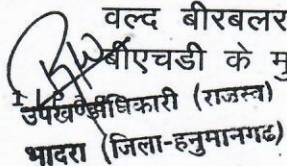 वल्द बीरबलर
बीएचडी के मु
उपखण्डाधिकारी (राजस्व)
भादरा (जिला-हनुमानगढ)